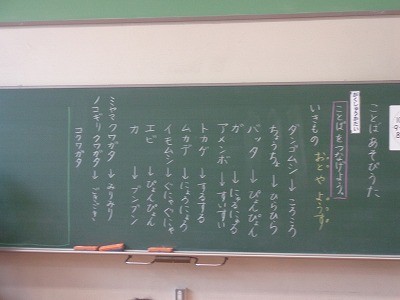 ことばあそびうた
がくしゅうかだい
ことばをつなげよう。
いきもの おとやようす
ダンゴムシ→ころころ
ちょうちょ→ひらひら
バッタ→ぴょんぴょん
ガ→にょろにょろ
アメンボ→すいすい
トカゲ→するする
ムカデ→にょろにょろ
イモムシ→ぐにゃぐにゃ
エビ→ぴょんぴょん
カ→ブンブン
ミヤマクワガタ→みりみり
ノコギリクワガタ→ごきごき
コクワガタ